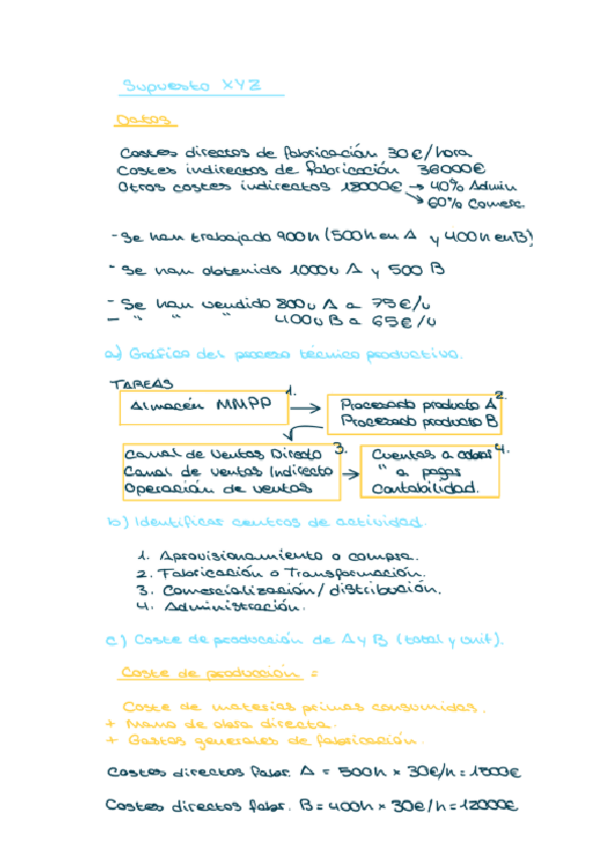 Supuesto XYZ
Datos
Costes directos de fabricación 30€/hora
Costes indirectos de fabricación 36000€
Otros costes indirectos 18000€ → 40% Admin
↘ 60% Comerc.
- Se han trabajado 900h (500h en A y 400h en B)
- Se han obtenido 1000u A y 500 B
- Se han vendido 800u A a 75€/u
- " " " 400u B a 65€/u
a) Gráfico del proceso técnico productivo.
TAREAS
1.
Almacén MMPP
2.
Procesado producto A
Procesado producto B
3.
Canal de Ventas Directo
Canal de ventas Indirecto
Operación de ventas
4.
Cuentas a cobrar
" a pagar
Contabilidad.
b) Identificar centros de actividad.
1. Aprovisionamiento o compra.
2. Fabricación o Transformación.
3. Comercialización / distribución.
4. Administración.
c) Coste de producción de A y B (total y unit).
Coste de producción =
Coste de materias primas consumidas.
+ Mano de obra directa.
+ Gastos generales de fabricación.
Costes directos fabr. A = 500h × 30€/h = 1500€
Costes directos fabr. B = 400h × 30€/h = 12000€